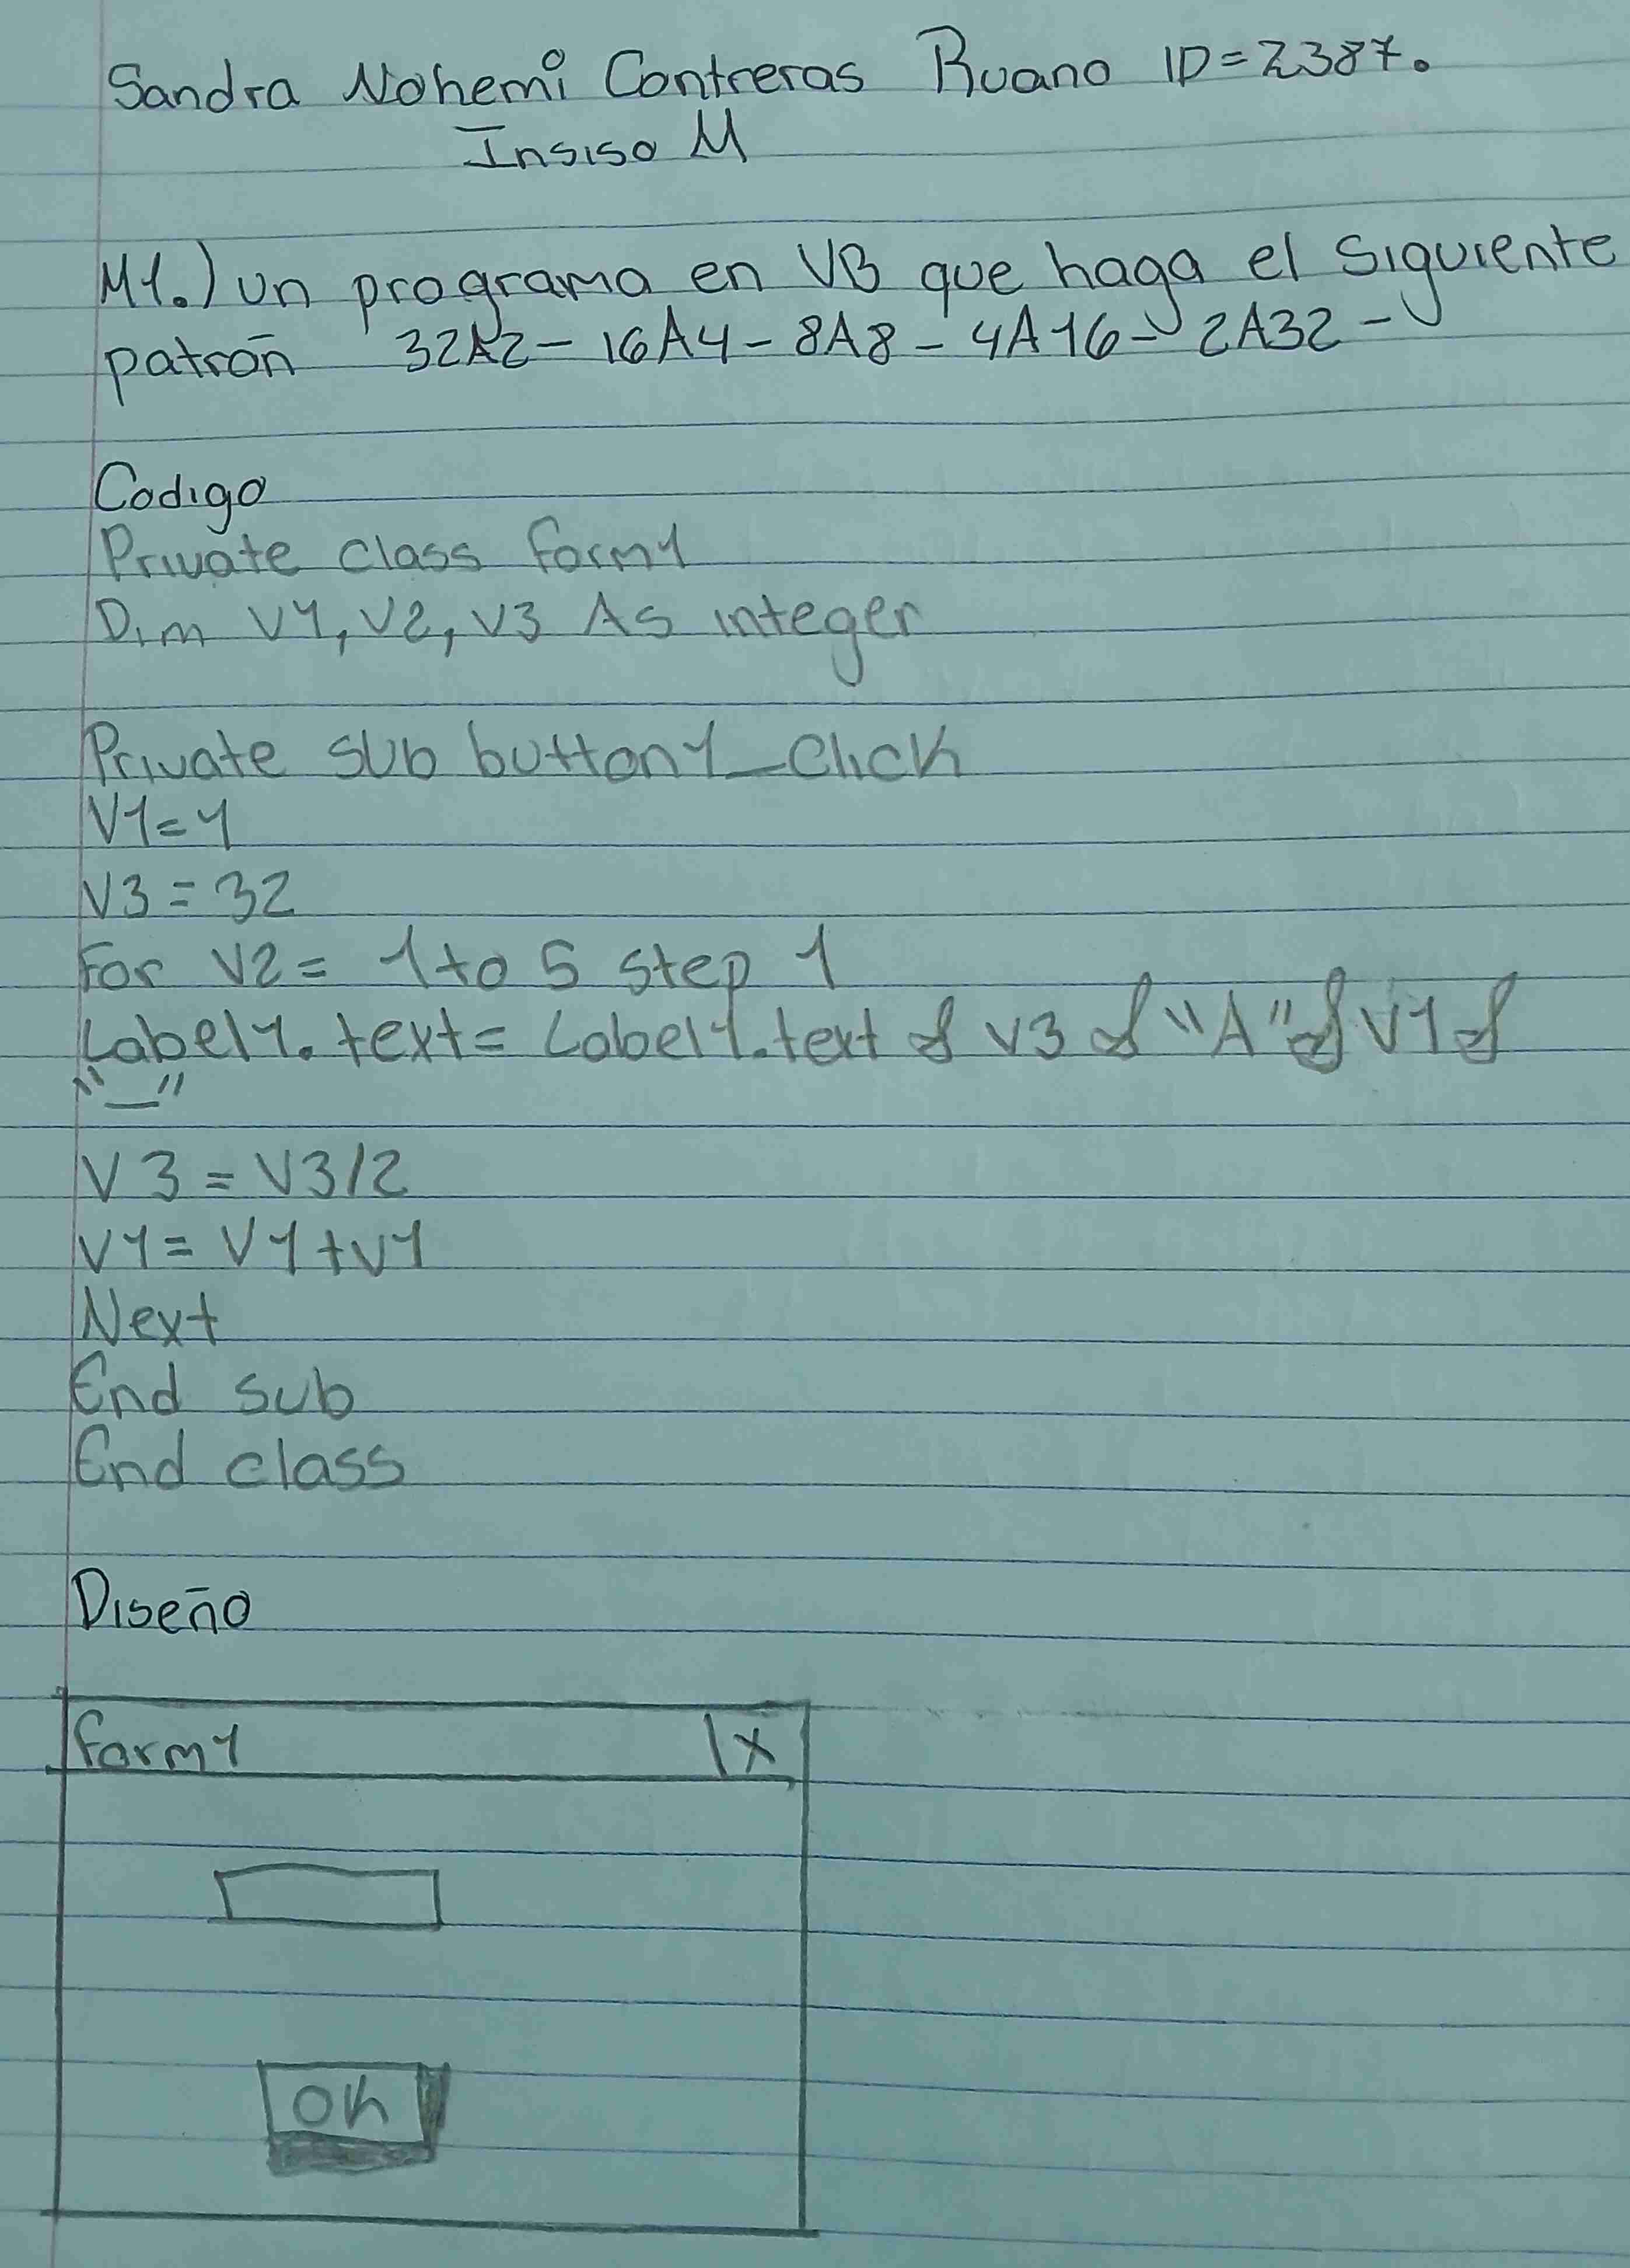 Sandra Nohemi Contreras Ruano ID=2387.
Insiso M
M1.) un programa en VB que haga el siguiente
patrón 32A2 - 16A4 - 8A8 - 4A16 - 2A32 -
Codigo
Private class form1
Dim V1, V2, V3 As integer
Private sub button1_Click
V1=1
V3=32
For V2= 1 to 5 step 1
Label1.text= Label1.text & V3 & "A" & V1 &
"_"
V3 = V3/2
V1= V1+V1
Next
End sub
End class
Diseño
form1 | X
OK